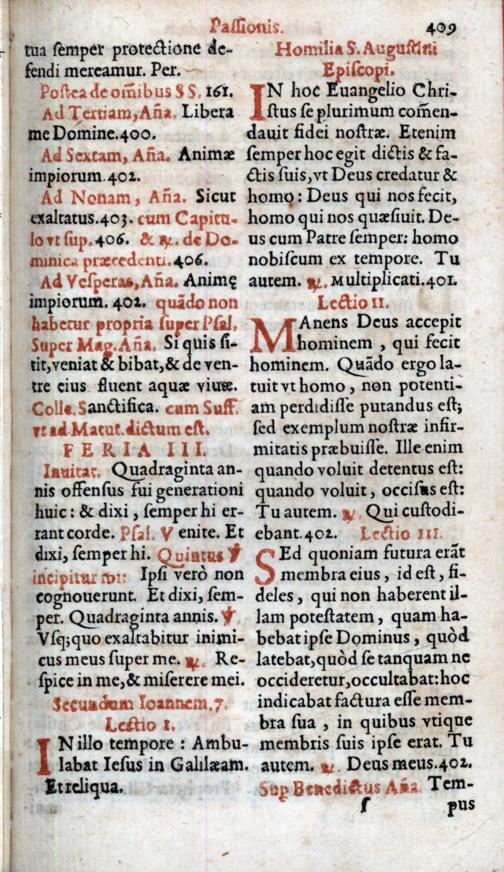 Passionis. 409
tua semper protectione de-
fendi mereamur. Per.
Postea de omībus SS. 161.
Ad Tertiam, Aña. Libera
me Domine. 400.
Ad Sextam, Aña. Animæ
impiorum. 402.
Ad Nonam, Aña. Sicut
exaltatus. 403. cum Capitu-
lo vt sup. 406. & ℟. de Do-
minica præcedenti. 406.
Ad Vesperas, Aña. Animę
impiorum. 402. quãdo non
habetur propria super Psal.
Super Mag. Aña. Si quis si-
tit, veniat & bibat, & de ven-
tre eius fluent aquæ viuæ.
Colle. Sanctifica. cum Suff.
vt ad Matut. dictum est.
FERIA III.
Inuitat. Quadraginta an-
nis offensus fui generationi
huic: & dixi, semper hi er-
rant corde. Psal. Venite. Et
dixi, semper hi. Quintus ℣
incipitur Ipsi verò non
cognouerunt. Et dixi, sem-
per. Quadraginta annis. ℣.
Vsq;quo exaltabitur inimi-
cus meus super me. ℟. Re-
spice in me, & miserere mei.
Secundum Ioannem. 7.
Lectio I.
IN illo tempore: Ambu-
labat Iesus in Galilæam.
Et reliqua.
Homilia S. Augustini
Episcopi.
IN hoc Euangelio Chri-
stus se plurimum cõmen-
dauit fidei nostræ. Etenim
semper hoc egit dictis & fa-
ctis suis, vt Deus credatur &
homo: Deus qui nos fecit,
homo qui nos quæsiuit. De-
us cum Patre semper: homo
nobiscum ex tempore. Tu
autem. ℟. Multiplicati. 401.
Lectio II.
MAnens Deus accepit
hominem, qui fecit
hominem. Quãdo ergo la-
tuit vt homo, non potenti-
am perdidisse putandus est;
sed exemplum nostræ infir-
mitatis præbuisse. Ille enim
quando voluit detentus est:
quando voluit, occisus est:
Tu autem. ℟. Qui custodi-
ebant. 402. Lectio III.
SEd quoniam futura erãt
membra eius, id est, fi-
deles, qui non haberent il-
lam potestatem, quam ha-
bebat ipse Dominus, quòd
latebat, quòd se tanquam ne
occideretur, occultabat: hoc
indicabat factura esse mem-
bra sua, in quibus vtique
membris suis ipse erat. Tu
autem. ℟. Deus meus. 402.
Sup Benedictus Aña. Tem-
f pus